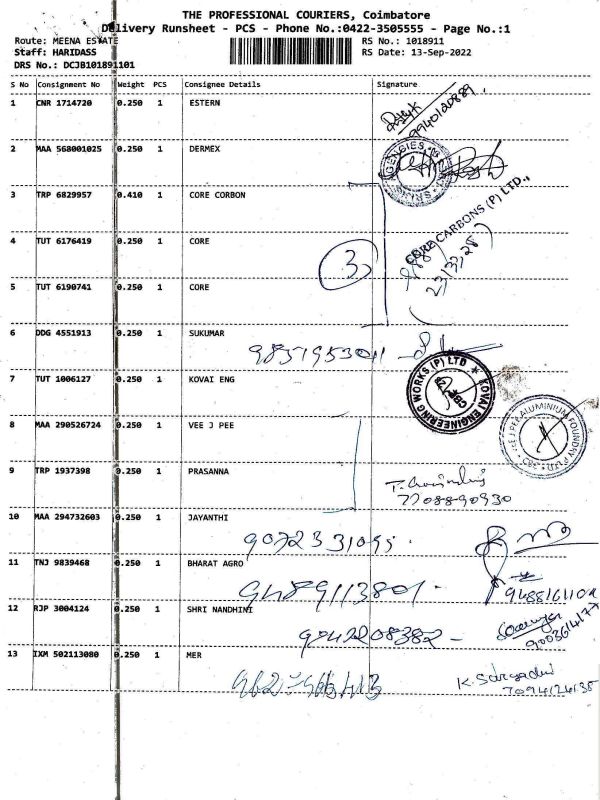 THE PROFESSIONAL COURIERS, Coimbatore
Delivery Runsheet - PCS - Phone No.:0422-3505555 - Page No.:1
Route: MEENA ESTATE RS No.: 1018911
Staff: HARIDASS RS Date: 13-Sep-2022
DRS No.: DCJB101891101
S No Consignment No Weight PCS Consignee Details Signature
1 CNR 1714720 0.250 1 ESTERN
9940120889
2 MAA 568001025 0.250 1 DERMEX
AGENCIES
3 TRP 6829957 0.410 1 CORE CORBON
CORE CARBONS (P) LTD.,
4 TUT 6176419 0.250 1 CORE
3
5 TUT 6190741 0.250 1 CORE
6 DDG 4551913 0.250 1 SUKUMAR
7 TUT 1006127 0.250 1 KOVAI ENG
KOVAI ENGINEERING WORKS (P) LTD
8 MAA 290526724 0.250 1 VEE J PEE
VEE J PEE ALUMINIUM FOUNDRY
9 TRP 1937398 0.250 1 PRASANNA
7708890930
10 MAA 294732603 0.250 1 JAYANTHI
11 TNJ 9839468 0.250 1 BHARAT AGRO
9489113801
12 RJP 3004124 0.250 1 SHRI NANDHINI
9003614177
9042208382
13 IXM 502113080 0.250 1 MER
7094124135